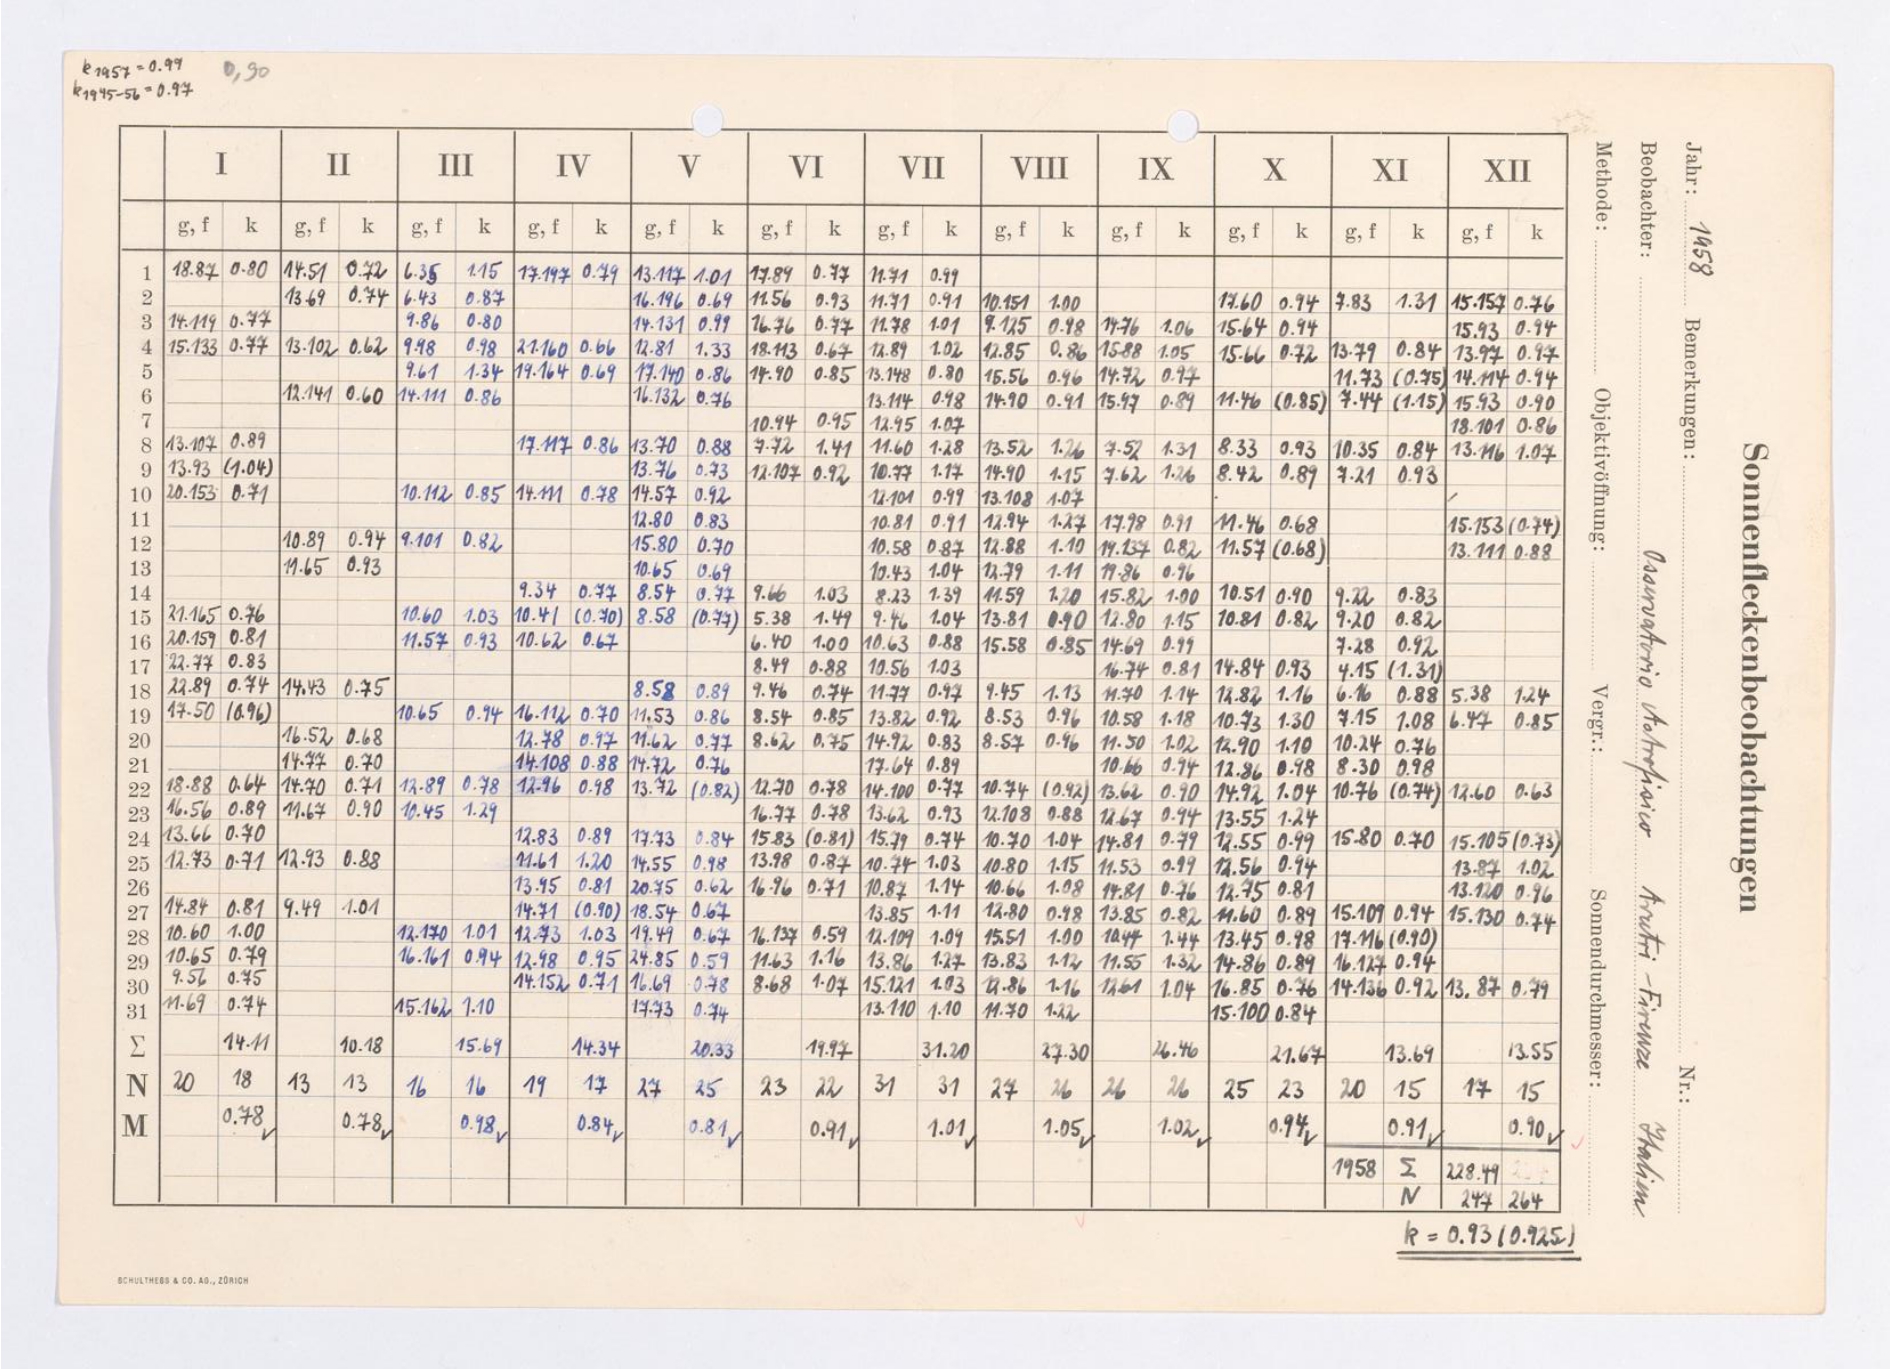 k 1957 = 0.99 0,90
k 1945-56 = 0.97
I II III IV V VI VII VIII IX X XI XII
g, f k g, f k g, f k g, f k g, f k g, f k g, f k g, f k g, f k g, f k g, f k g, f k
1 18.87 0.80 14.51 0.72 6.35 1.15 17.197 0.79 13.117 1.01 17.89 0.77 11.71 0.99
2 13.69 0.74 6.43 0.87 16.196 0.69 11.56 0.93 11.71 0.91 10.151 1.00 17.60 0.94 7.83 1.31 15.157 0.76
3 14.119 0.77 9.86 0.80 14.131 0.99 16.76 0.77 11.78 1.01 9.125 0.98 14.76 1.06 15.64 0.94 15.93 0.94
4 15.133 0.77 13.102 0.62 9.98 0.98 21.160 0.66 12.81 1.33 18.113 0.67 12.89 1.02 12.85 0.86 15.88 1.05 15.66 0.72 13.79 0.84 13.97 0.97
5 9.61 1.34 19.164 0.69 17.140 0.86 14.90 0.85 13.148 0.80 15.56 0.96 14.72 0.97 11.73 (0.75) 14.114 0.94
6 12.141 0.60 14.111 0.86 16.132 0.76 13.114 0.98 14.90 0.91 15.97 0.89 11.46 (0.85) 7.44 (1.15) 15.93 0.90
7 10.94 0.95 12.95 1.07 18.101 0.86
8 13.107 0.89 17.117 0.86 13.70 0.88 7.72 1.41 11.60 1.28 13.52 1.26 7.52 1.31 8.33 0.93 10.35 0.84 13.116 1.07
9 13.93 (1.04) 13.76 0.73 12.107 0.92 10.77 1.17 14.90 1.15 7.62 1.26 8.42 0.89 7.21 0.93
10 20.153 0.71 10.112 0.85 14.111 0.78 14.57 0.92 12.101 0.99 13.108 1.07
11 12.80 0.83 10.81 0.91 12.94 1.27 17.98 0.91 11.46 0.68 15.153 (0.74)
12 10.89 0.94 9.101 0.82 15.80 0.70 10.58 0.87 12.88 1.10 19.137 0.82 11.57 (0.68) 13.111 0.88
13 11.65 0.93 10.65 0.69 10.43 1.04 12.79 1.11 19.86 0.96
14 9.34 0.77 8.54 0.77 9.66 1.03 8.23 1.39 11.59 1.20 15.82 1.00 10.51 0.90 9.22 0.83
15 21.165 0.76 10.60 1.03 10.41 (0.70) 8.58 (0.77) 5.38 1.49 9.46 1.04 13.81 0.90 12.80 1.15 10.81 0.82 9.20 0.82
16 20.159 0.81 11.57 0.93 10.62 0.67 6.40 1.00 10.63 0.88 15.58 0.85 14.69 0.99 7.28 0.92
17 22.77 0.83 8.49 0.88 10.56 1.03 16.74 0.81 14.84 0.93 4.15 (1.31)
18 22.89 0.74 14.43 0.75 8.58 0.89 9.46 0.74 11.77 0.97 9.45 1.13 11.70 1.14 12.82 1.16 6.16 0.88 5.38 1.24
19 17.50 (0.96) 10.65 0.94 16.112 0.70 11.53 0.86 8.54 0.85 13.82 0.92 8.53 0.96 10.58 1.18 10.73 1.30 7.15 1.08 6.47 0.85
20 16.52 0.68 12.78 0.97 11.62 0.77 8.62 0.75 14.92 0.83 8.57 0.96 11.50 1.02 12.90 1.10 10.24 0.76
21 14.77 0.70 14.108 0.88 14.72 0.76 17.64 0.89 10.66 0.94 12.86 0.98 8.30 0.98
22 18.88 0.64 14.70 0.71 12.89 0.78 12.96 0.98 13.72 (0.82) 12.70 0.78 14.100 0.77 10.74 (0.92) 13.62 0.90 14.92 1.04 10.76 (0.74) 12.60 0.63
23 16.56 0.89 11.67 0.90 10.45 1.29 16.77 0.78 13.62 0.93 12.108 0.88 12.67 0.94 13.55 1.24
24 13.66 0.70 12.83 0.89 17.73 0.84 15.83 (0.81) 15.79 0.74 10.70 1.04 14.81 0.79 12.55 0.99 15.80 0.70 15.105 (0.73)
25 12.73 0.71 12.93 0.88 11.61 1.20 14.55 0.98 13.98 0.87 10.74 1.03 10.80 1.15 11.53 0.99 12.56 0.94 13.87 1.02
26 13.95 0.81 20.75 0.62 16.96 0.71 10.87 1.14 10.66 1.08 14.81 0.76 12.75 0.81 13.120 0.96
27 14.84 0.81 9.49 1.01 14.71 (0.90) 18.54 0.67 13.85 1.11 12.80 0.98 13.85 0.82 11.60 0.89 15.109 0.94 15.130 0.74
28 10.60 1.00 12.170 1.01 12.73 1.03 19.49 0.67 16.137 0.59 12.109 1.09 15.51 1.00 10.44 1.44 13.45 0.98 17.116 (0.90)
29 10.65 0.79 16.161 0.94 12.98 0.95 24.85 0.59 11.63 1.16 13.86 1.27 13.83 1.12 11.55 1.32 14.86 0.89 16.127 0.94
30 9.56 0.75 14.152 0.71 16.69 0.78 8.68 1.07 15.121 1.03 12.86 1.16 12.61 1.04 16.85 0.76 14.136 0.92 13.87 0.79
31 11.69 0.74 15.162 1.10 17.73 0.74 13.110 1.10 11.70 1.22 15.100 0.84
Σ 14.11 10.18 15.69 14.34 20.33 19.97 31.20 27.30 26.46 21.67 13.69 13.55
N 20 18 13 13 16 16 19 17 27 25 23 22 31 31 27 26 26 26 25 23 20 15 17 15
M 0.78 0.78 0.98 0.84 0.81 0.91 1.01 1.05 1.02 0.94 0.91 0.90
1958 Σ 228.49
N 247 264
k = 0.93 (0.925)
SCHULTHESS & CO. AG., ZÜRICH
Sonnenfleckenbeobachtungen
Jahr: 1958 Bemerkungen: Nr.:
Beobachter: Osservatorio Astrofisico Arcetri - Firenze Italien
Methode: Objektivöffnung: Vergr.: Sonnendurchmesser: